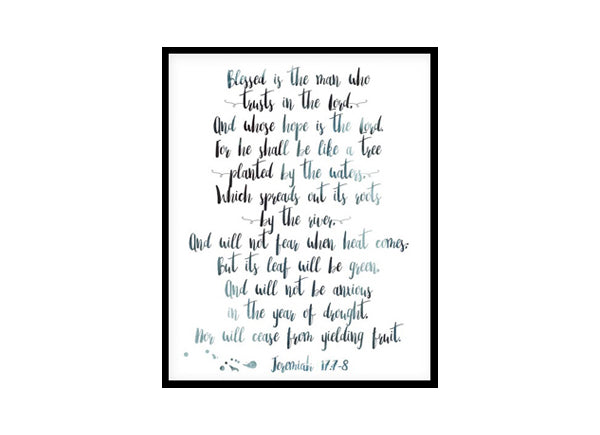 Blessed is the man who
trusts in the Lord,
And whose hope is the Lord.
For he shall be like a tree
planted by the waters,
Which spreads out its roots
by the river,
And will not fear when heat comes;
But its leaf will be green,
And will not be anxious
in the year of drought.
Nor will cease from yielding fruit.
Jeremiah 17:7-8